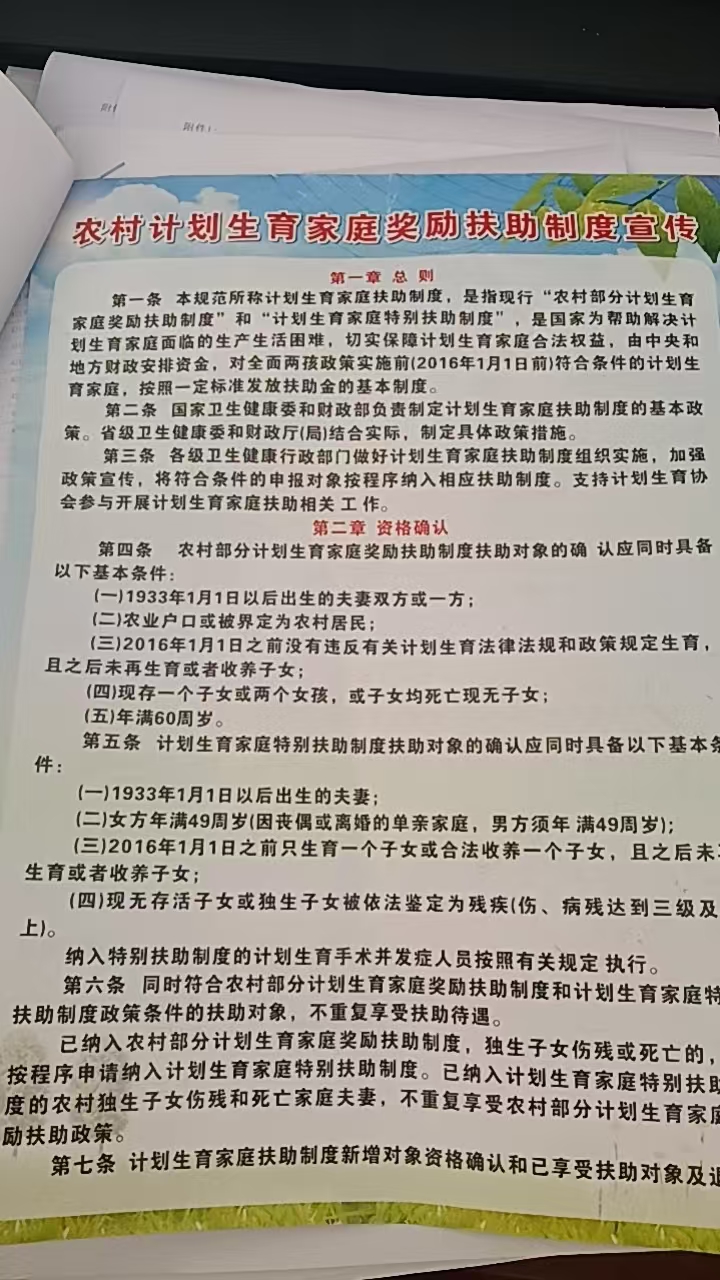 附件
附件:
农村计划生育家庭奖励扶助制度宣传
第一章 总 则
第一条 本规范所称计划生育家庭扶助制度，是指现行“农村部分计划生育
家庭奖励扶助制度”和“计划生育家庭特别扶助制度”，是国家为帮助解决计
划生育家庭面临的生产生活困难，切实保障计划生育家庭合法权益，由中央和
地方财政安排资金，对全面两孩政策实施前(2016年1月1日前)符合条件的计划生
育家庭，按照一定标准发放扶助金的基本制度。
第二条 国家卫生健康委和财政部负责制定计划生育家庭扶助制度的基本政
策。省级卫生健康委和财政厅(局)结合实际，制定具体政策措施。
第三条 各级卫生健康行政部门做好计划生育家庭扶助制度组织实施，加强
政策宣传，将符合条件的申报对象按程序纳入相应扶助制度。支持计划生育协
会参与开展计划生育家庭扶助相关 工 作。
第二章 资格确认
第四条 农村部分计划生育家庭奖励扶助制度扶助对象的确 认应同时具备
以下基本条件：
(一)1933年1月1日以后出生的夫妻双方或一方；
(二)农业户口或被界定为农村居民；
(三)2016年1月1日之前没有违反有关计划生育法律法规和政策规定生育，
且之后未再生育或者收养子女；
(四)现存一个子女或两个女孩，或子女均死亡现无子女；
(五)年满60周岁。
第五条 计划生育家庭特别扶助制度扶助对象的确认应同时具备以下基本条
件：
(一)1933年1月1日以后出生的夫妻；
(二)女方年满49周岁(因丧偶或离婚的单亲家庭，男方须年 满49周岁)；
(三)2016年1月1日之前只生育一个子女或合法收养一个子女，且之后未
生育或者收养子女；
(四)现无存活子女或独生子女被依法鉴定为残疾(伤、病残达到三级及
上)。
纳入特别扶助制度的计划生育手术并发症人员按照有关规定 执行。
第六条 同时符合农村部分计划生育家庭奖励扶助制度和计划生育家庭特
扶助制度政策条件的扶助对象，不重复享受扶助待遇。
已纳入农村部分计划生育家庭奖励扶助制度，独生子女伤残或死亡的，
按程序申请纳入计划生育家庭特别扶助制度。已纳入计划生育家庭特别扶助
度的农村独生子女伤残和死亡家庭夫妻，不重复享受农村部分计划生育家庭
励扶助政策。
第七条 计划生育家庭扶助制度新增对象资格确认和已享受扶助对象及退